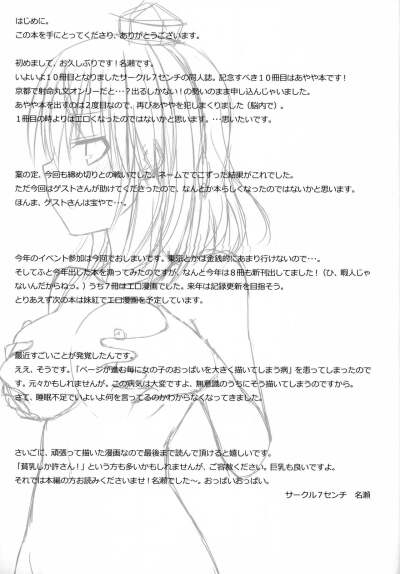 はじめに。
この本を手にとってくださり、ありがとうございます。
初めまして、お久しぶりです！名瀬です。
いよいよ１０冊目となりましたサークル７センチの同人誌。記念すべき１０冊目はあやや本です！
京都で射命丸文オンリーだと・・・？出るしかない！の勢いのまま申し込んじゃいました。
あやや本を出すのは２度目なので、再びあややを犯しまくりました（脳内で）。
１冊目の時よりはエロくなったのではないかと思います。・・・思いたいです。
案の定、今回も締め切りとの戦いでした。ネームでてこずった結果がこれでした。
ただ今回はゲストさんが助けてくださったので、なんとか本らしくなったのではないかと思います。
ほんま、ゲストさんは宝やで・・・。
今年のイベント参加は今回でおしまいです。東京とかは金銭的にあまり行けないので・・・。
そしてふと今年出した本を振ってみたのですが、なんと今年は８冊も新刊出してました！（ひ、暇人じゃ
ないんだからねっ。）うち７冊はエロ漫画でした。来年は記録更新を目指そう。
とりあえず次の本は妹紅でエロ漫画を予定しています。
最近すごいことが発覚したんです。
ええ、そうです。「ページが進む毎に女の子のおっぱいを大きく描いてしまう病」を患ってしまったので
す。元々かもしれませんが。この病気は大変ですよ、無意識のうちにそう描いてしまうのですから。
さて、睡眠不足でいよいよ何を言ってるのかわからなくなってきました。
さいごに、頑張って描いた漫画なので最後まで読んで頂けると嬉しいです。
「貧乳しか許さん！」という方も多いかもしれませんが、ご容赦ください。巨乳も良いですよ。
それでは本編の方お読みくださいませ！名瀬でした～。おっぱいおっぱい。
サークル７センチ　名瀬